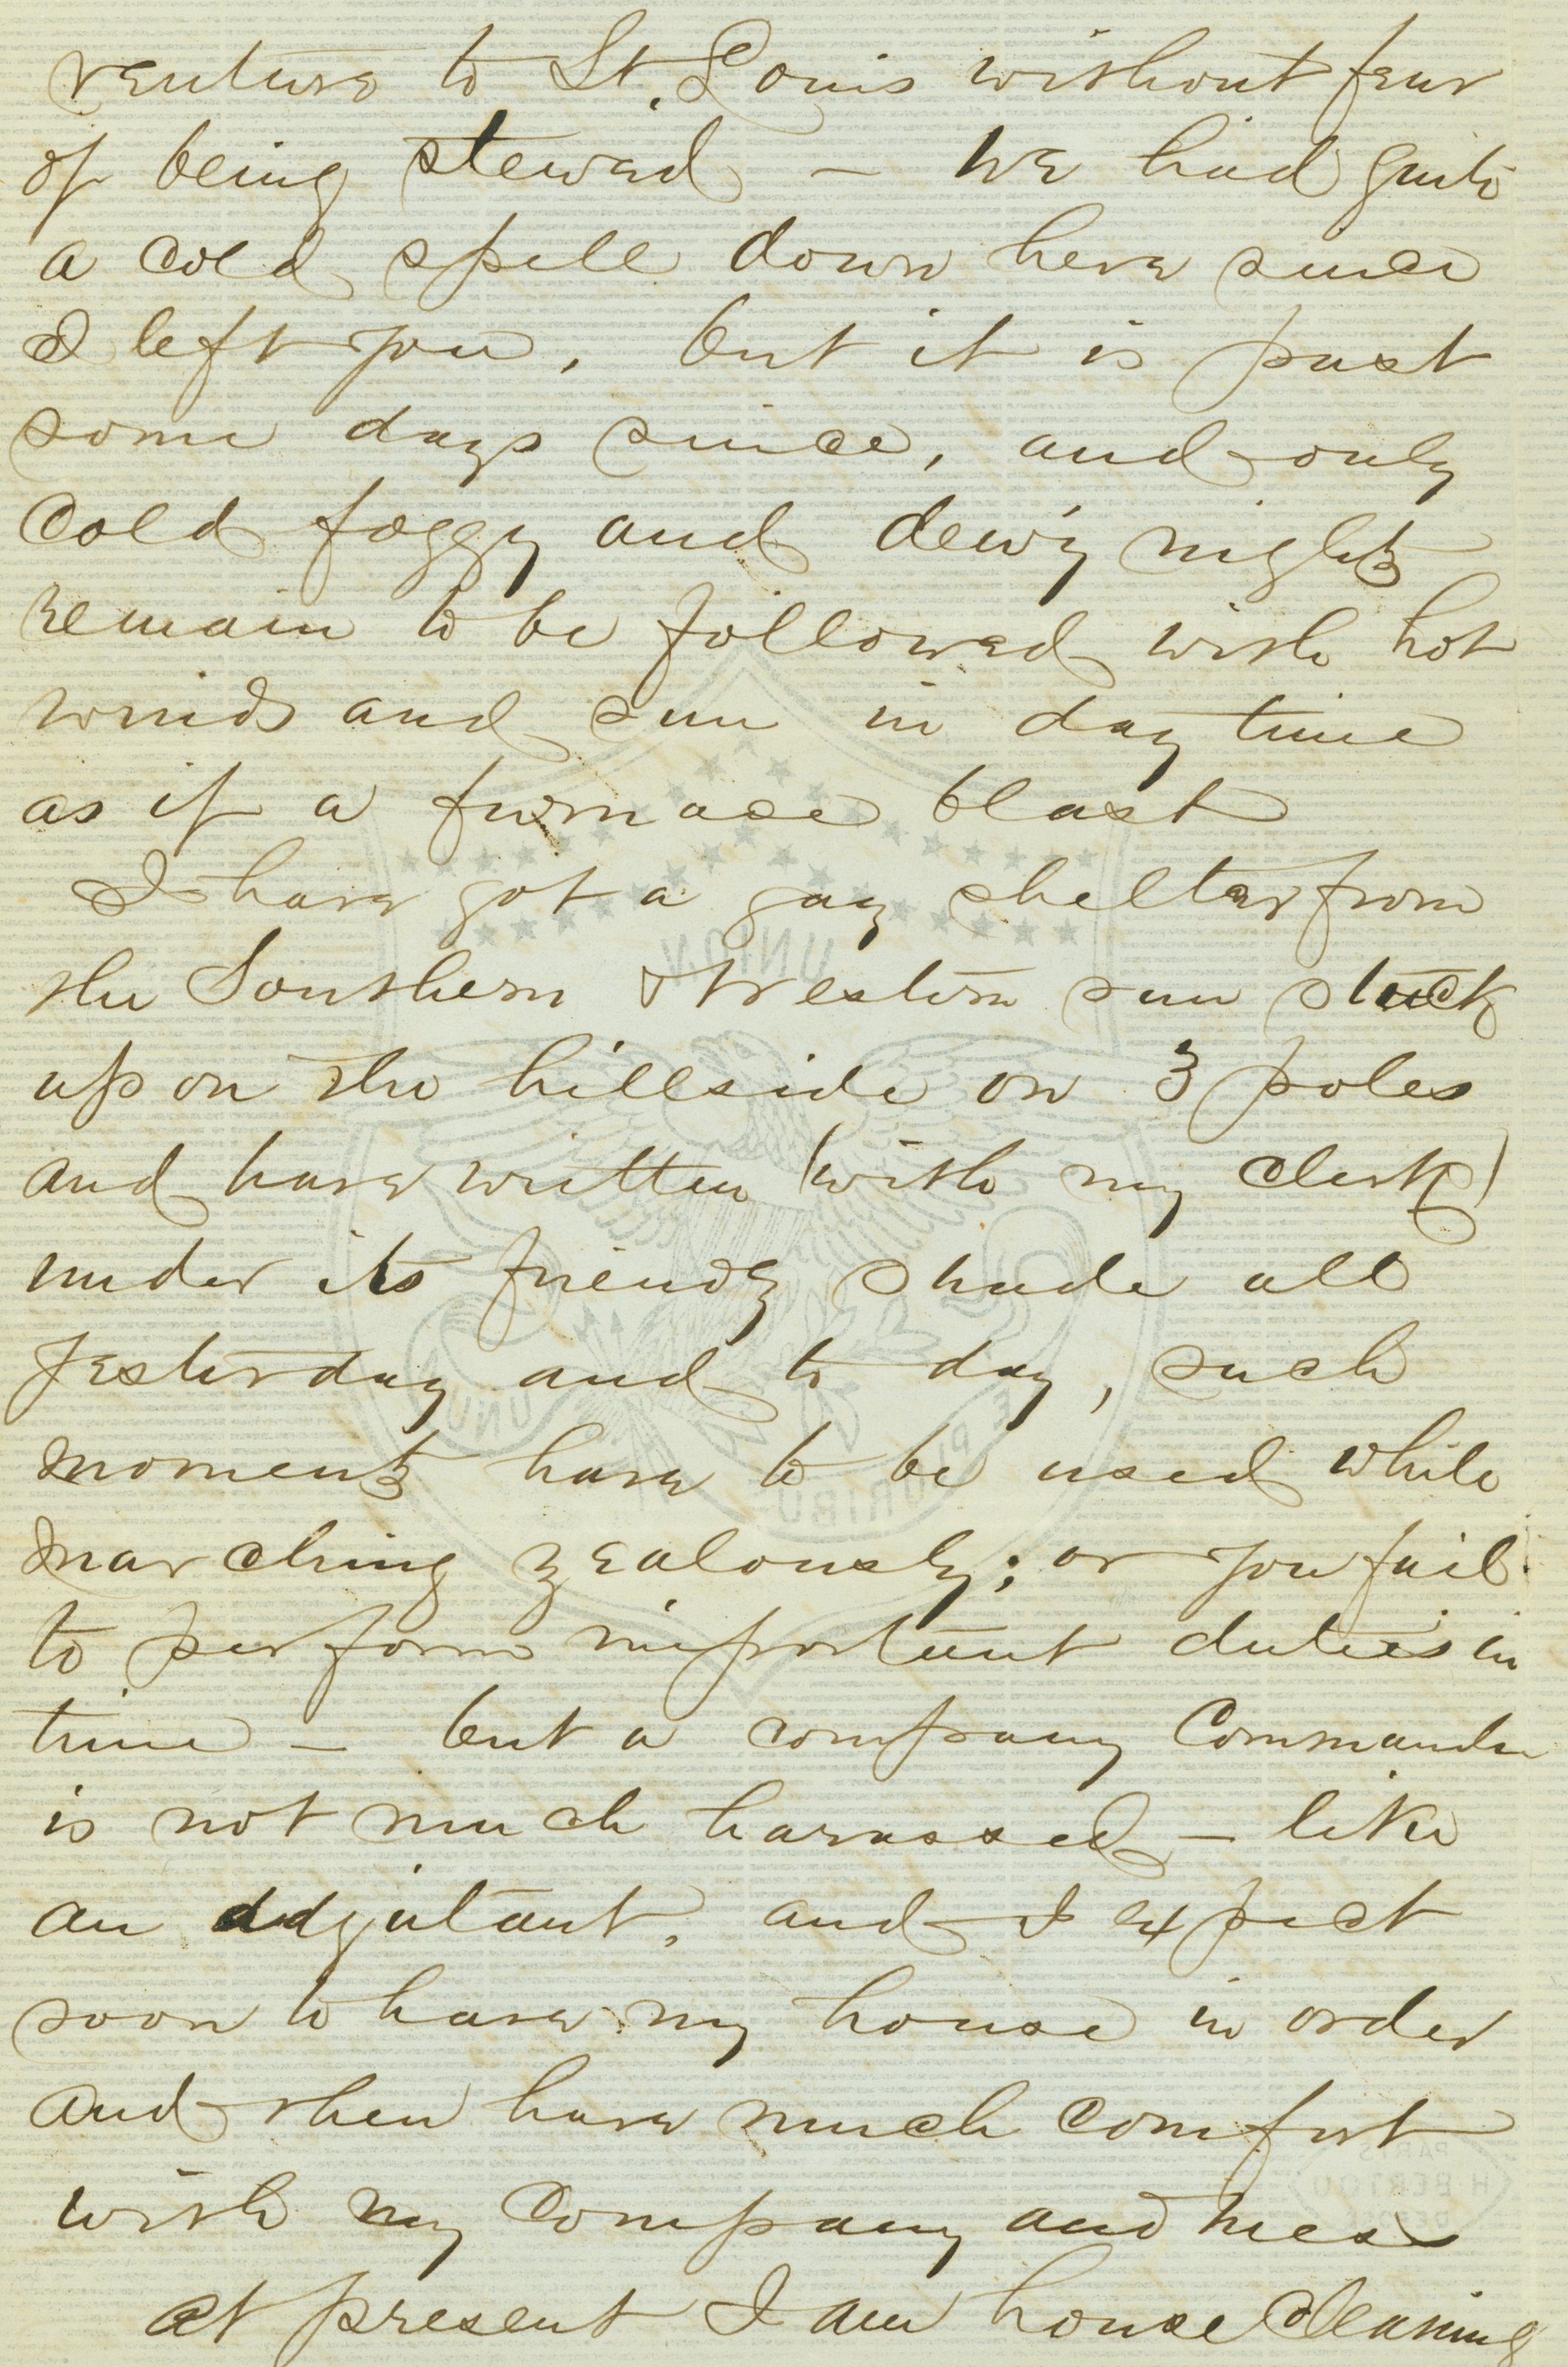 venture to St. Louis without fear
of being stewed – We had quite
a cold spell down here since
I left you, but it is past
some days since, and only
cold foggy and dewy nights
remain to be followed with hot
winds and sun in day time
as if a furnace blast
I have got a gay shelter from
the Southern & Western sun stuck
up on the hillside on 3 poles
and have written (with my clerk)
under its friendly shade all
yesterday and to day, such
moments have to be used while
marching zealously; or you fail
to perform important duties in
time – but a company Commander
is not much harassed – like
an adjutant, and I expect
soon to have my house in order
and then have much comfort
with my Company and mess
at present I am house cleaning
UNION
E PLURIBUS UNUM
PARIS
H. BERTOU
DEPOSE